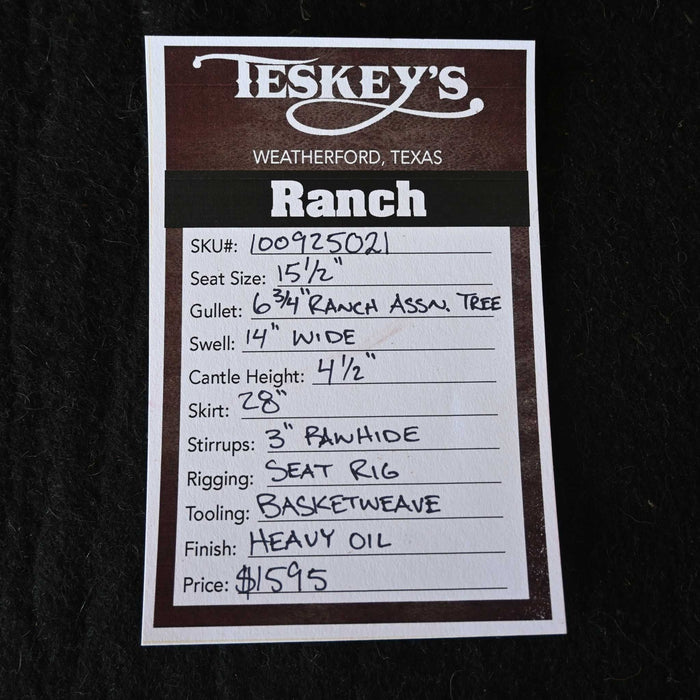 TESKEY'S
WEATHERFORD, TEXAS
Ranch
SKU#: 100925021
Seat Size: 15 1/2"
Gullet: 6 3/4" RANCH ASSN. TREE
Swell: 14" WIDE
Cantle Height: 4 1/2"
Skirt: 28"
Stirrups: 3" RAWHIDE
Rigging: SEAT RIG
Tooling: BASKETWEAVE
Finish: HEAVY OIL
Price: $1595